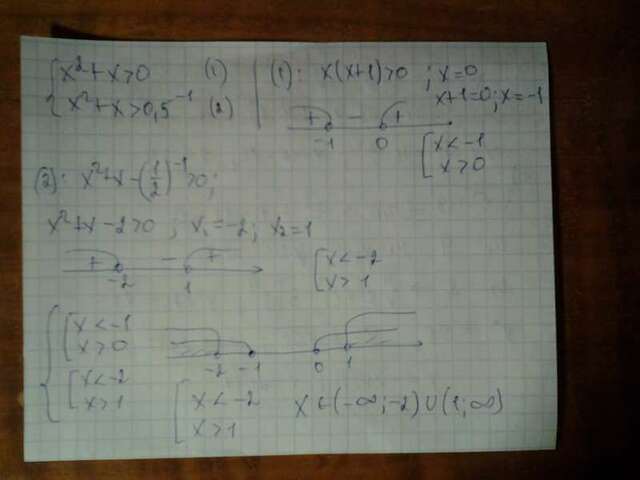 { x² + x > 0 (1)
x² + x > 0,5⁻¹ (2)
(1): x(x+1) > 0 ; x = 0
x+1=0; x=-1
+ - +
-1 0
[ x < -1
x > 0
(2): x² + x - (1/2)⁻¹ > 0;
x² + x - 2 > 0 ; x₁ = -2; x₂ = 1
+ - +
-2 1
[ x < -2
x > 1
{ [ x < -1
x > 0
[ x < -2
x > 1
-2 -1 0 1
[ x < -2
x > 1
x ∈ (-∞; -2) ∪ (1; ∞)